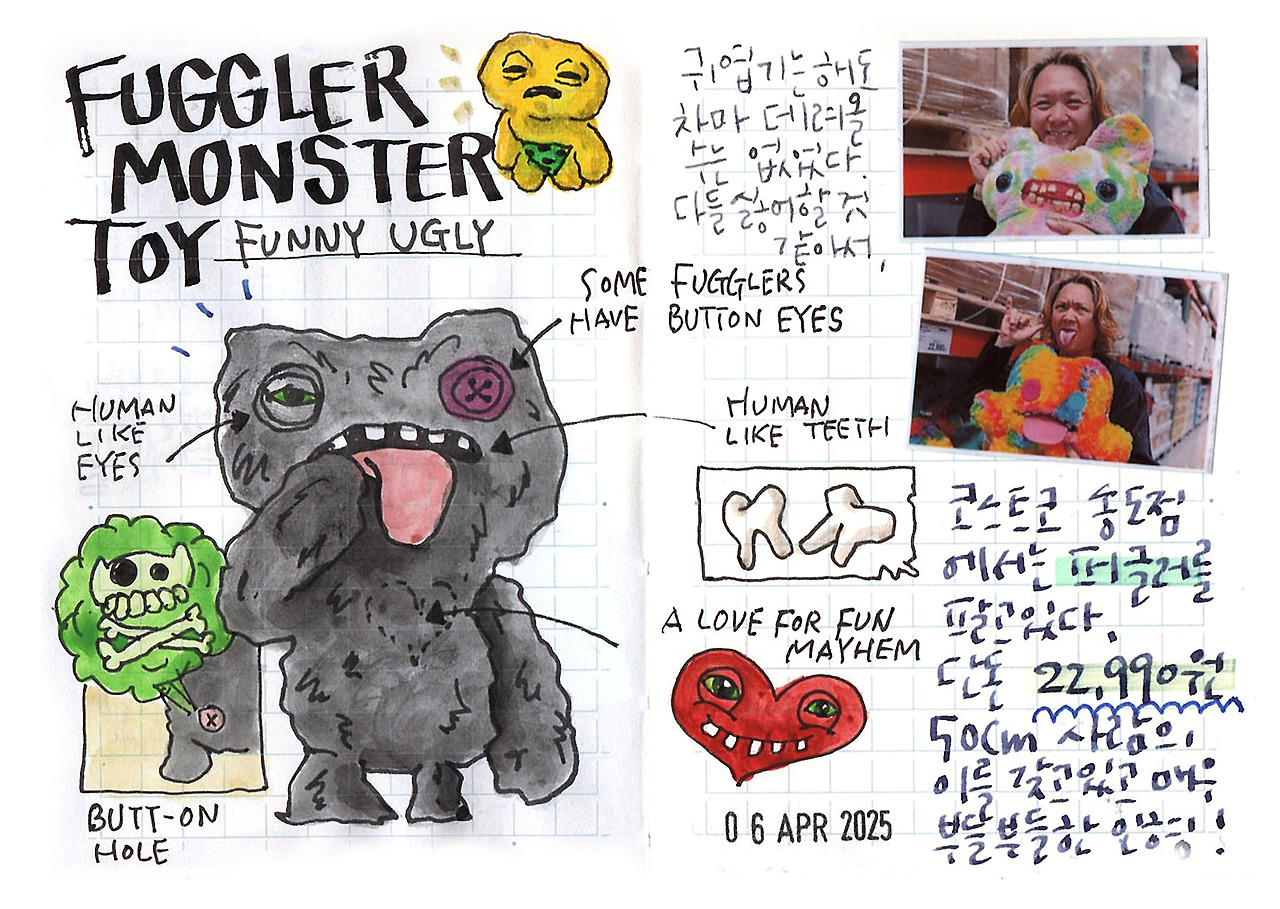 FUGGLER
MONSTER
TOY FUNNY UGLY
HUMAN
LIKE
EYES
BUTT-ON
HOLE
귀엽기는 해도
차마 데려올
수는 없었다.
다들 싫어할 것
같아서,
SOME FUGGLERS
HAVE BUTTON EYES
HUMAN
LIKE TEETH
A LOVE FOR FUN
MAYHEM
06 APR 2025
코스트코 송도점
에서는 퍼글러를
팔고있다.
단돈 22,990원
50cm 사람의
이를 갖고있고 매우
부들부들한 인형임!